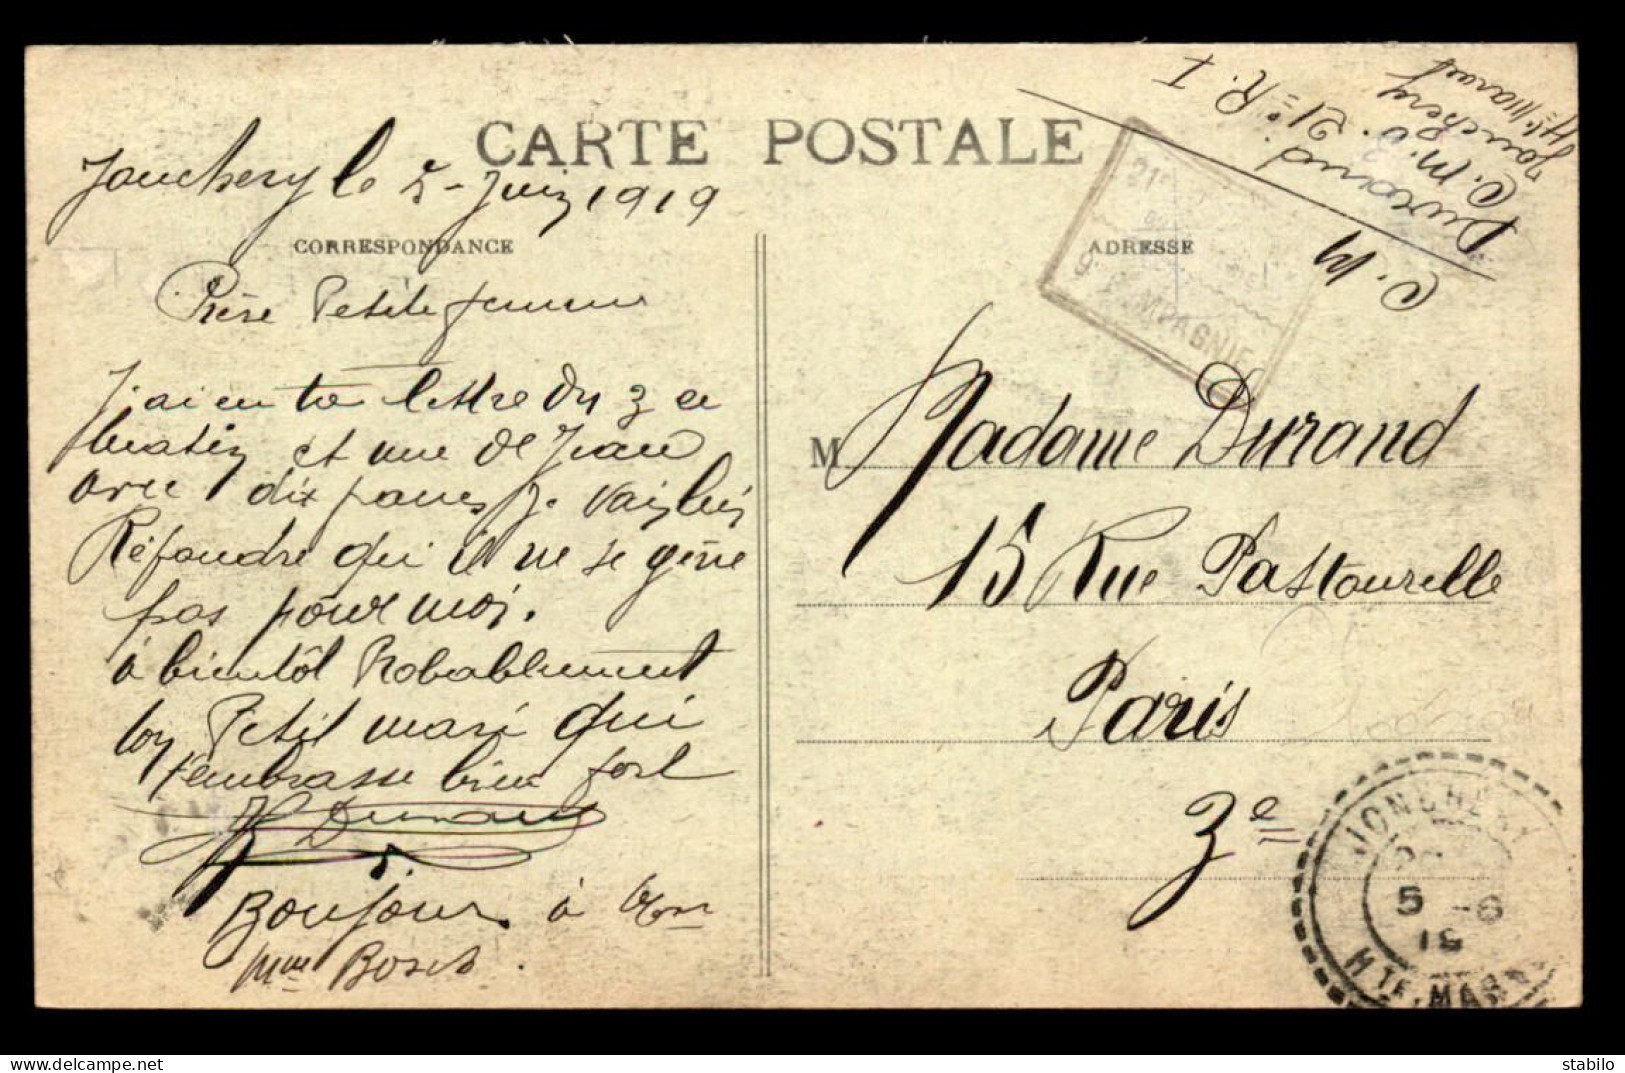 CARTE POSTALE
Jonchery le 5 Juin 1919
CORRESPONDANCE
Chère Petite femme
J'ai eu ta lettre du 3 ce
matin et une de Jean
avec dix francs, Je vais lui
Répondre qui il ne se gène
pas pour moi.
à bientôt Probablement
ton Petit mari qui
t'embrasse bien fort
Durand
Bonjour à Mr
Mme Bosch.
ADRESSE
Durand
C. M. 3. 21e R. I
Jonchery
Hte Marne
C. M
21e
9 COMPAGNIE
M Madame Durand
15 Rue Pastourelle
Paris
3e
JONCHERY
5 -6
19
HTE-MARNE
stabilo